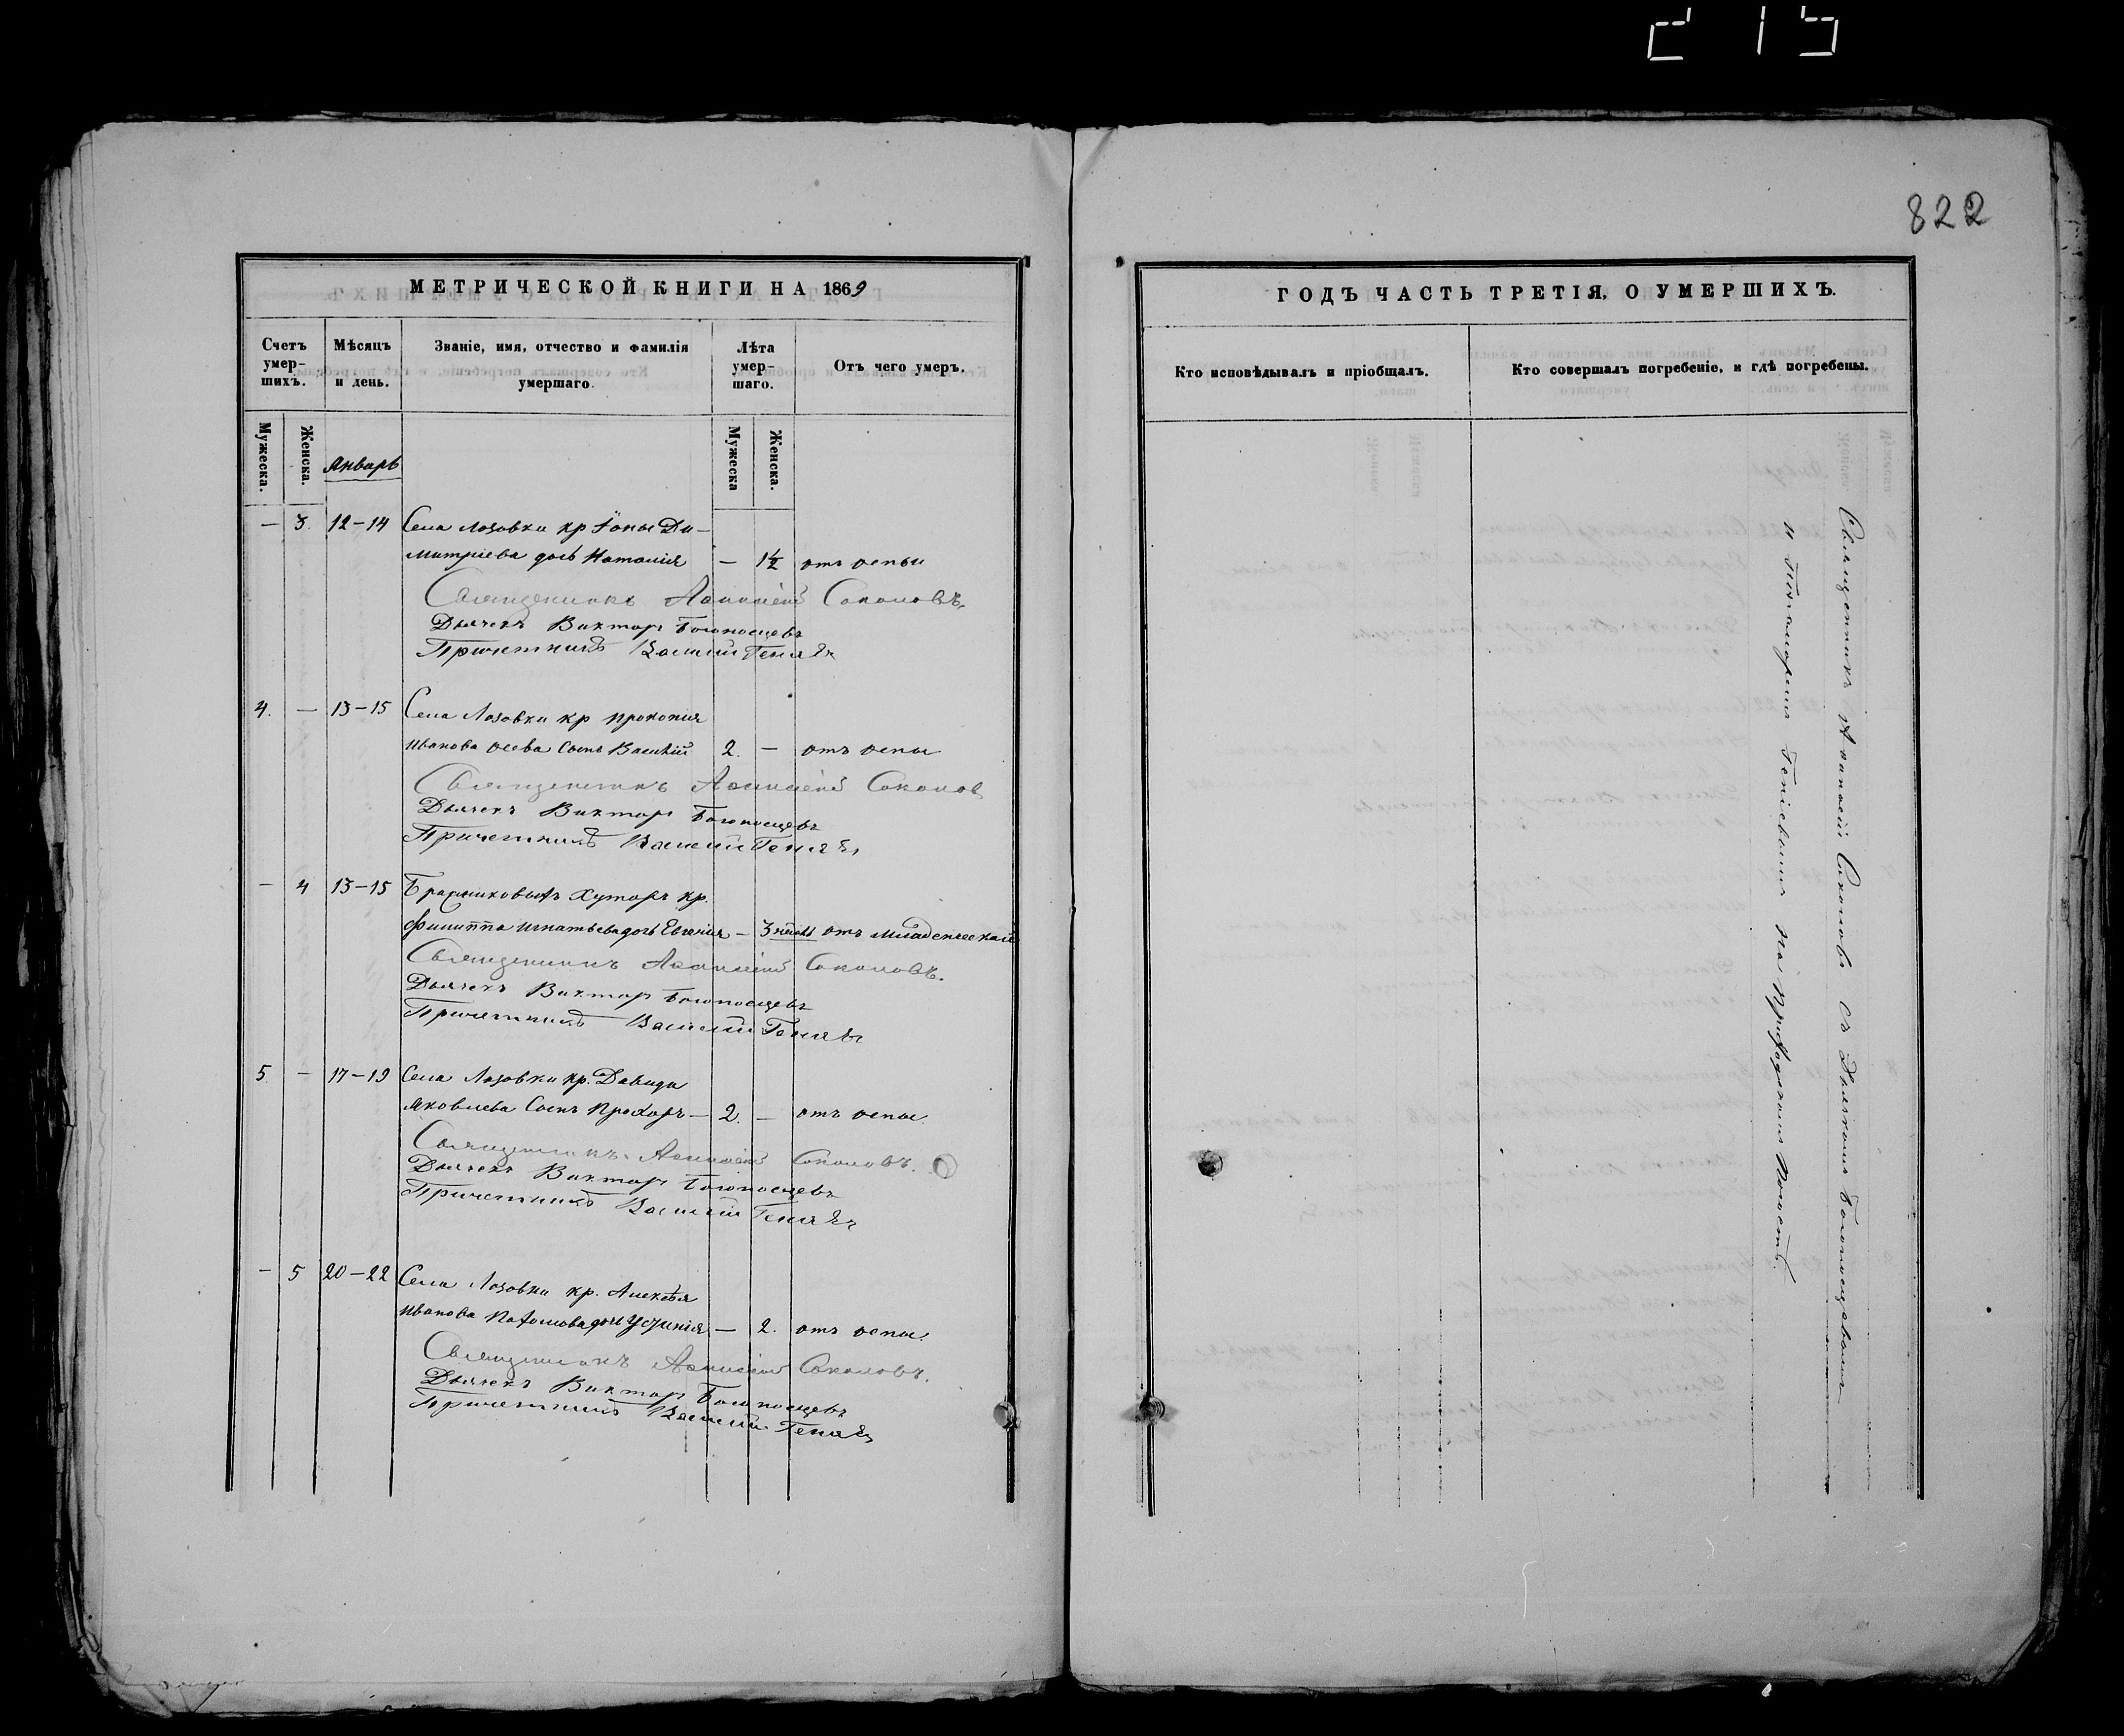 215
822
МЕТРИЧЕСКОЙ КНИГИ НА 1869
Счетъ умер-шихъ.
Мѣсяцъ и день.
Званіе, имя, отчество и фамилія умершаго.
Лѣта умер-шаго.
Отъ чего умеръ.
Мужеска.
Женска.
Январь
Мужеска
Женска.
— 3. 12–14 Села Лозовки кр Іоны Ди-
митріева дочь Наталія — 1½ отъ оспы
Священникъ Аѳанасій Соколовъ.
Дьячекъ Викторъ Богоносцевъ
Причетникъ Василій
4. — 13–15 Села Лозовки кр Прокопія
Иванова сынъ Василій 2. — отъ оспы
Священникъ Аѳанасій Соколов
Дьячекъ Викторъ Богоносцевъ
Причетникъ Василій
— 4 13–15 Хуторъ кр.
Филиппа Игнатьева дочь Евгенія — 3 отъ младенческой
Священникъ Аѳанасій Соколовъ.
Дьячекъ Викторъ Богоносцевъ
Причетникъ Василій
5 — 17–19 Села Лозовки кр. Давида
Яковлева Сынъ Прохоръ — 2. — отъ оспы.
Священникъ Аѳанасій Соколовъ.
Дьячекъ Викторъ Богоносцевъ
Причетникъ Василій
— 5 20–22 Села Лозовки кр. Алексѣя
Иванова дочь Устинія — 2. отъ оспы.
Священникъ Аѳанасій Соколовъ.
Дьячекъ Викторъ Богоносцевъ
Причетникъ Василій
ГОДЪ ЧАСТЬ ТРЕТІЯ, О УМЕРШИХЪ.
Кто исповѣдывалъ и пріобщалъ.
Кто совершалъ погребеніе, и гдѣ погребены.
Священникъ Аѳанасій Соколовъ съ Дьячкомъ Богоносцевымъ
и Пономаремъ на Приходскомъ Погостѣ.